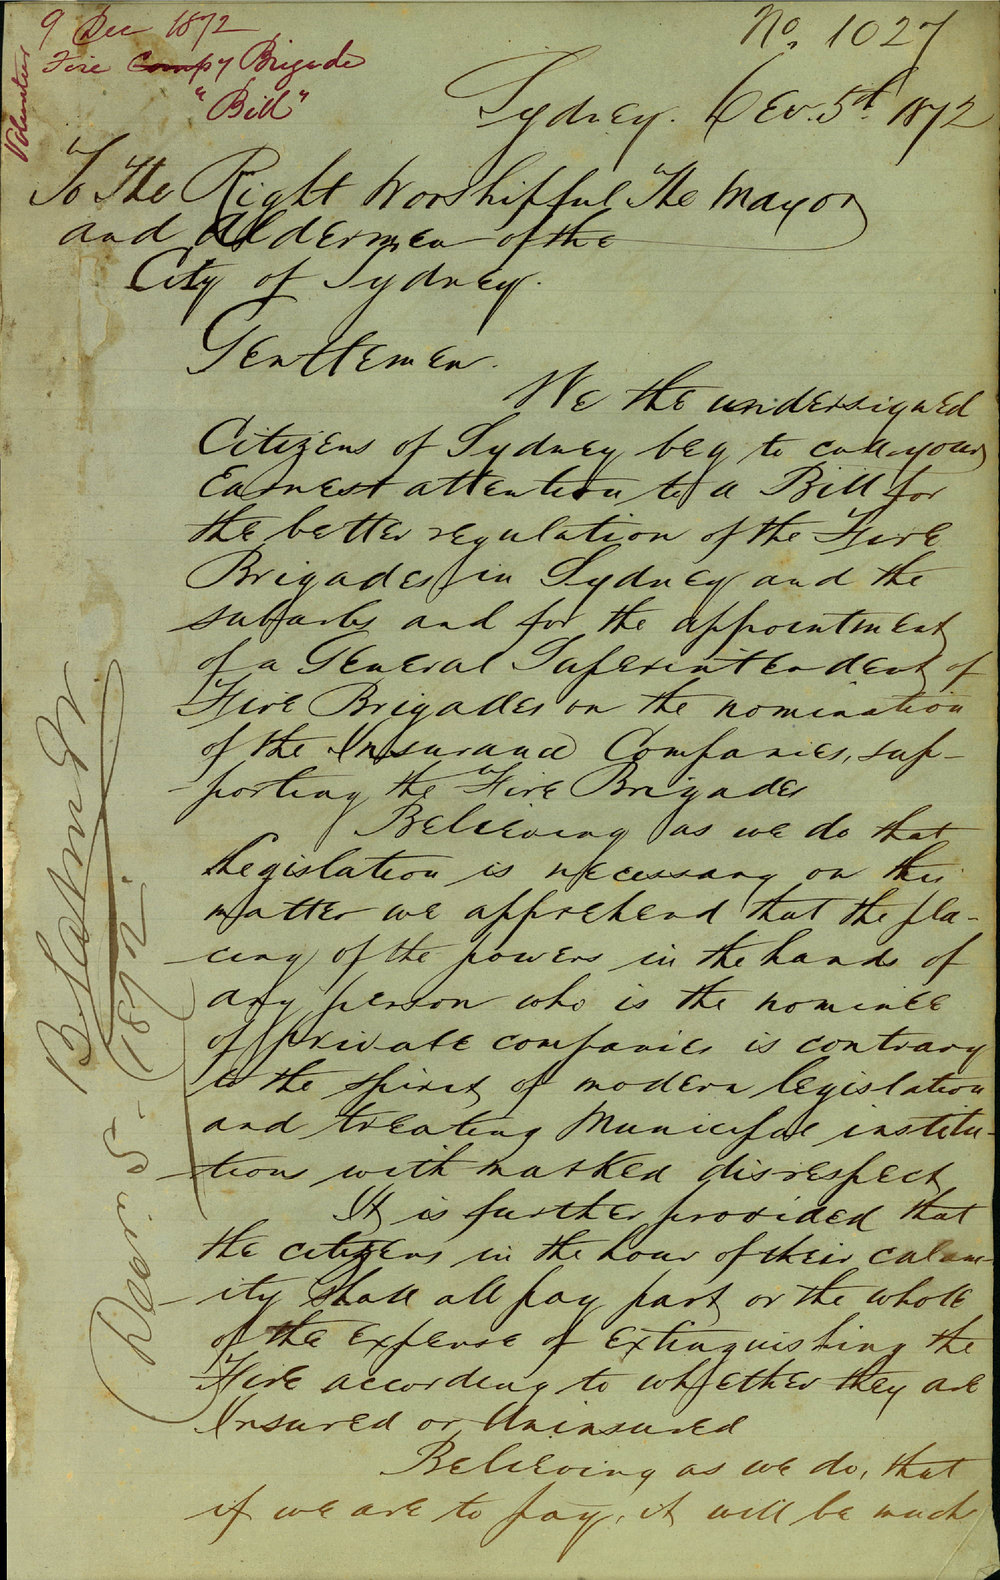 9 Dec 1872
Fire Compy Brigade
Volunteer
"Bill"
No. 1027
Sydney. Dec. 5th. 1872
To The Right Worshipful The Mayor
and Aldermen of the
City of Sydney.
Gentlemen.
We the undersigned
Citizens of Sydney beg to call your
Earnest attention to a Bill for
the better regulation of the Fire
Brigades in Sydney and the
suburbs and for the appointment
of a General Superintendent of
Fire Brigades on the nomination
of the Insurance Companies, sup-
porting the Fire Brigades
Believing as we do that
Legislation is necessary on this
matter we apprehend that the pla-
cing of the powers in the hands of
any person who is the nominee
of private companies is contrary
to the spirit of modern legislation
and treating Municipal institu-
tions with marked disrespect
It is further provided that
the citizens in the hour of their calam-
ity shall all pay part or the whole
of the expense of extinguishing the
Fire according to whether they are
Insured or Uninsured
Believing as we do, that
if we are to pay, it will be much
Decr. 5 - 1872.